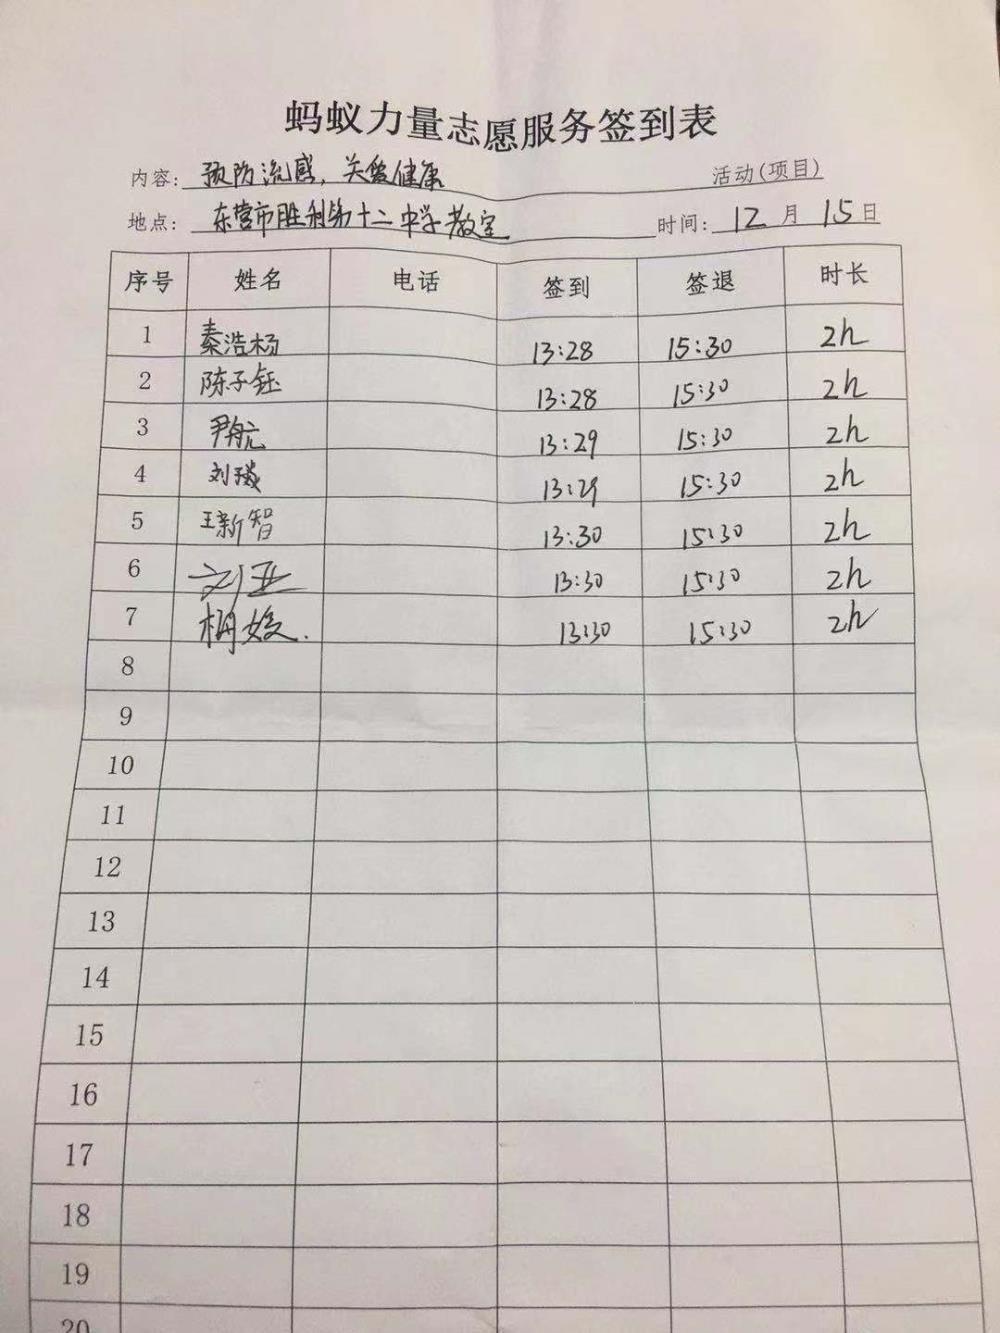 蚂蚁力量志愿服务签到表
内容: 预防流感，关爱健康 活动(项目)
地点: 东营市胜利第十二中学教室 时间: 12月15日
序号 姓名 电话 签到 签退 时长
1 秦浩杨 13:28 15:30 2h
2 陈子钰 13:28 15:30 2h
3 尹航 13:29 15:30 2h
4 刘琰 13:29 15:30 2h
5 王新智 13:30 15:30 2h
6 刘亚 13:30 15:30 2h
7 13:30 15:30 2h
8
9
10
11
12
13
14
15
16
17
18
19
20